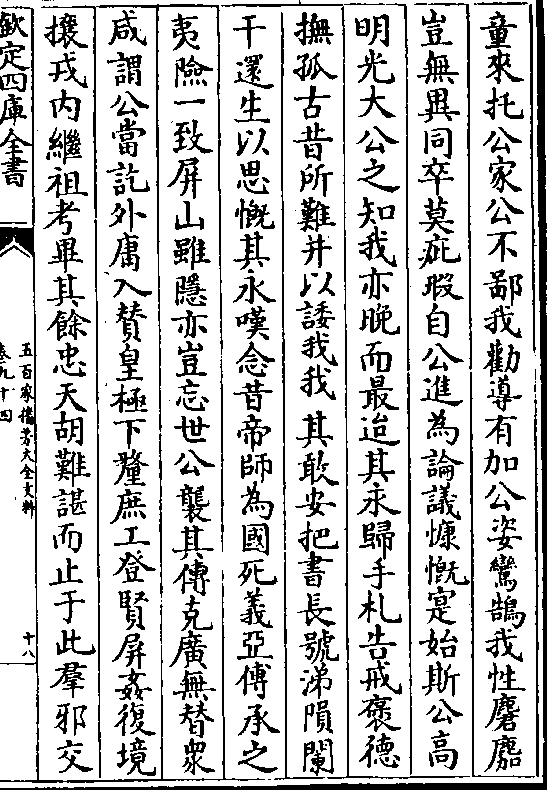 童來托公家公不鄙我勸導有加公姿鸞鵠我性麏麚
豈無異同卒莫疵瑕自公進為論議慷慨寔始斯公高
明光大公之知我亦晚而最迨其永歸手札告戒褒德
撫孤古昔所難并以諉我我其敢安把書長號涕隕闌
干還生以思慨其永嘆念昔帝師為國死義亞傅承之
夷險一致屏山雖隱亦豈忘世公襲其傳克廣無替衆
咸謂公當訖外庸入贊皇極下釐庶工登賢屏姦復境
攘戎内繼祖考畢其餘忠天胡難諶而止于此羣邪交
欽定四庫全書
五百家播芳大全文粹
卷九十四
十八